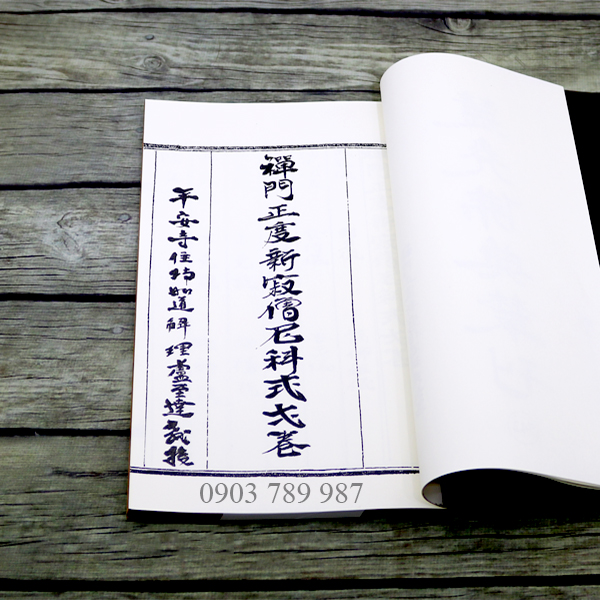 禪門正度新寂僧尼科式弍卷
平安寺住持知道稱理盧至達敬授
0903 789 987